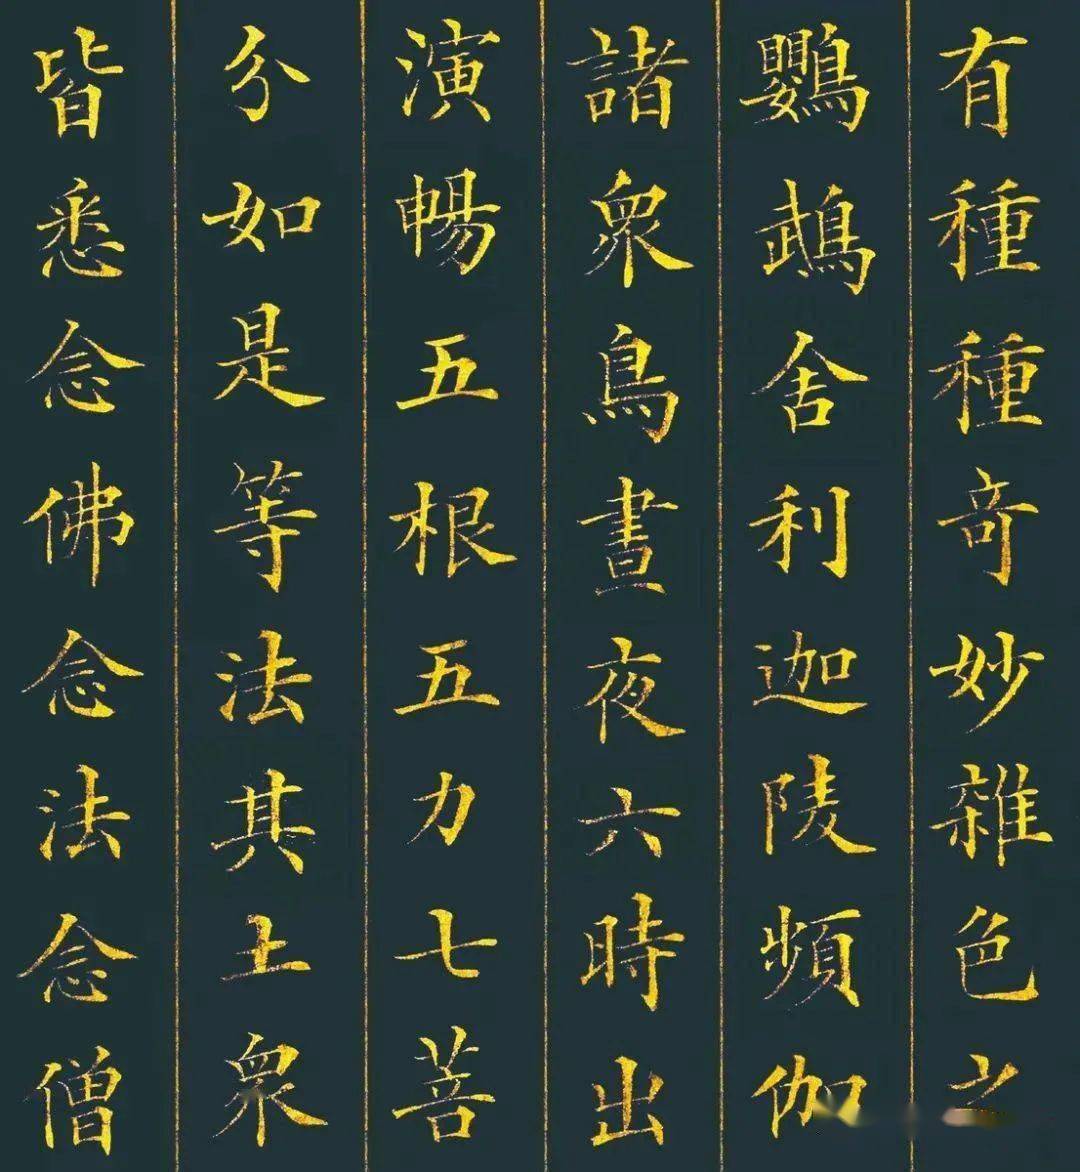 有種種奇妙雜色之
鸚鵡舍利迦陵頻伽
諸衆鳥晝夜六時出
演暢五根五力七菩
分如是等法其土衆
皆悉念佛念法念僧